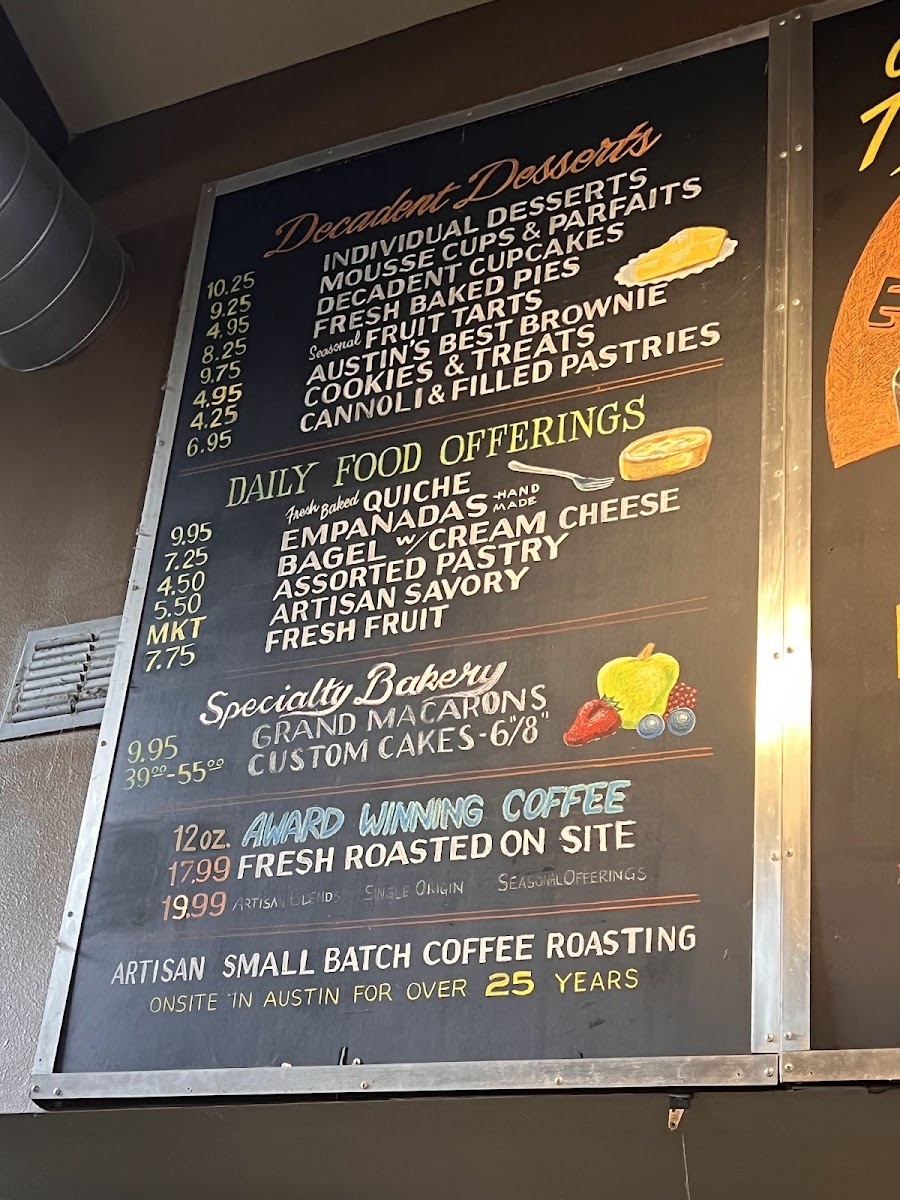 Decadent Desserts
10.25 INDIVIDUAL DESSERTS
9.25 MOUSSE CUPS & PARFAITS
4.95 DECADENT CUPCAKES
8.25 FRESH BAKED PIES
9.75 Seasonal FRUIT TARTS
4.95 AUSTIN'S BEST BROWNIE
4.25 COOKIES & TREATS
6.95 CANNOLI & FILLED PASTRIES
DAILY FOOD OFFERINGS
9.95 Fresh Baked QUICHE
7.25 EMPANADAS -HAND MADE
4.50 BAGEL w/ CREAM CHEESE
5.50 ASSORTED PASTRY
MKT ARTISAN SAVORY
7.75 FRESH FRUIT
Specialty Bakery
9.95 GRAND MACARONS
39⁰⁰-55⁰⁰ CUSTOM CAKES - 6"/8"
12oz. AWARD WINNING COFFEE
17.99 FRESH ROASTED ON SITE
19.99 ARTISAN BLENDS SINGLE ORIGIN SEASONAL OFFERINGS
ARTISAN SMALL BATCH COFFEE ROASTING
ONSITE IN AUSTIN FOR OVER 25 YEARS